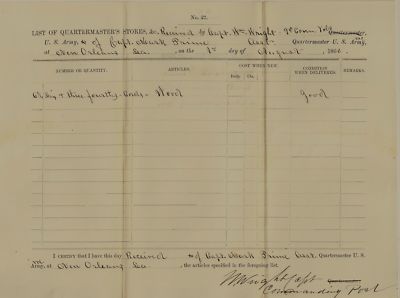 No. 27.
LIST OF QUARTERMASTER'S STORES, &c. Received by Capt. Wm. Wright 9th Conn Vols Quartermaster,
U. S. Army, of Capt. Mark Prime Asst. Quartermaster U. S. Army,
at New Orleans La. , on the 1st day of August , 186
NUMBER OR QUANTITY. ARTICLES. COST WHEN NEW. CONDITION WHEN DELIVERED. REMARKS.
Dolls. Cts.
Six & three fourths Cords Wood Good
I CERTIFY that I have this day Received of Capt. Mark Prime Asst. Quartermaster U. S.
Army, at New Orleans La , the articles specified in the foregoing list.
W Wright Capt
Commanding Post